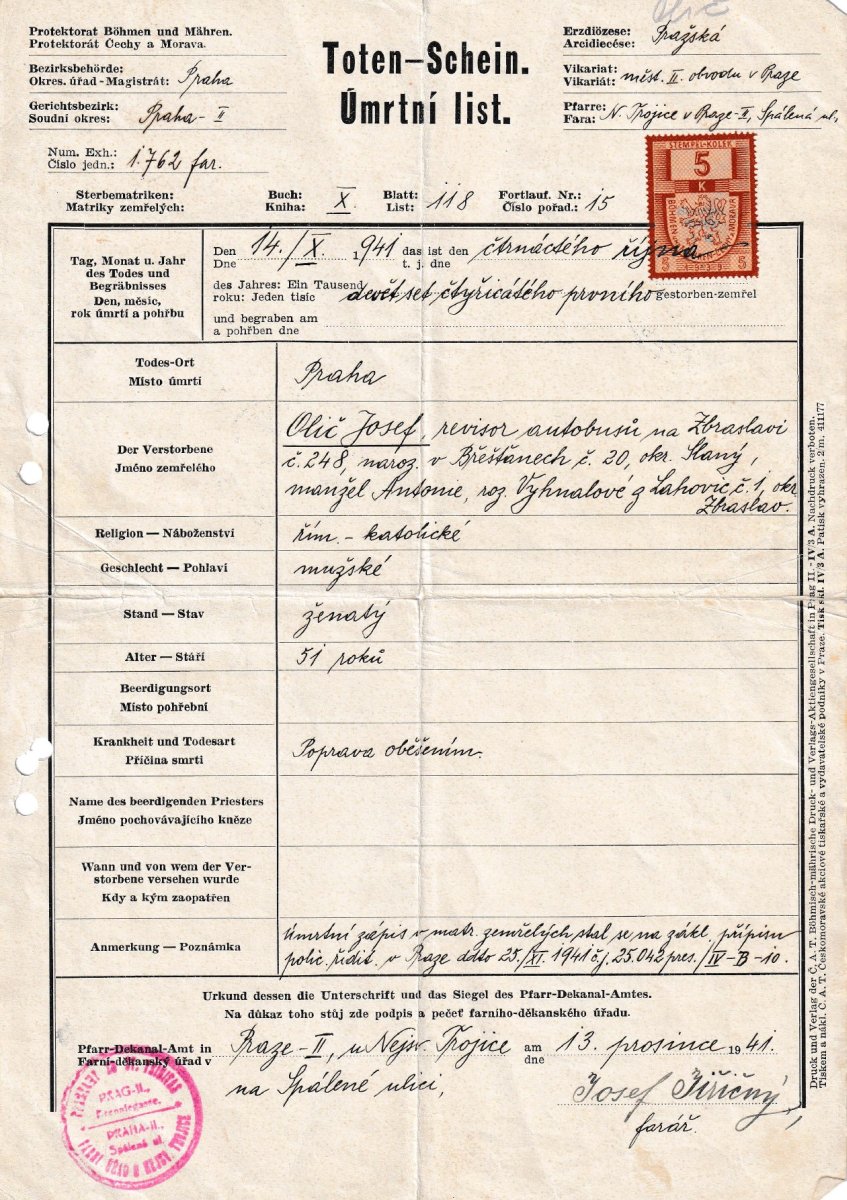 Olič
Protektorat Böhmen und Mähren.
Protektorát Čechy a Morava.
Bezirksbehörde:
Okres. úřad - Magistrát: Praha
Gerichtsbezirk:
Soudní okres: Praha - II
Toten-Schein.
Úmrtní list.
Erzdiözese:
Arcidiecése: Pražská
Vikariat:
Vikariát: měst. II. obvodu v Praze
Pfarre:
Fara: N. Trojice v Praze-II, Spálená ul.,
Num. Exh.:
Číslo jedn.: 1.762 far.
STEMPEL-KOLEK
5
K
BÖHMEN
MORAVA
5 5
Sterbematriken: Buch: Blatt: Fortlauf. Nr.:
Matriky zemřelých: Kniha: X. List: 118 Číslo pořad.: 15
Tag, Monat u. Jahr
des Todes und
Begräbnisses
Den, měsíc,
rok úmrtí a pohřbu
Den
Dne 14./X. 1941 das ist den
t. j. dne čtrnáctého října
des Jahres: Ein Tausend
roku: Jeden tisíc devět set čtyřicátého prvního gestorben-zemřel
und begraben am
a pohřben dne
Todes-Ort
Místo úmrtí
Praha
Der Verstorbene
Jméno zemřelého
Olič Josef, revisor autobusů na Zbraslavi
č. 248, naroz. v Břešťanech č. 20, okr. Slaný,
manžel Antonie, roz. Vyhnalové z Lahovic č. 1, okr.
Zbraslav.
Religion — Náboženství
řím. - katolické
Geschlecht — Pohlaví
mužské
Stand — Stav
ženatý
Alter — Stáří
51 roků
Beerdigungsort
Místo pohřební
Krankheit und Todesart
Příčina smrti
Poprava oběšením.
Name des beerdigenden Priesters
Jméno pochovávajícího kněze
Wann und von wem der Ver-
storbene versehen wurde
Kdy a kým zaopatřen
Anmerkung — Poznámka
Úmrtní zápis v matr. zemřelých stal se na zákl. přípisu
polic. ředit. v Praze ddto 25./XI. 1941 č.j. 25.042 pres./IV-B-10.
Urkund dessen die Unterschrift und das Siegel des Pfarr-Dekanal-Amtes.
Na důkaz toho stůj zde podpis a pečeť farního-děkanského úřadu.
Pfarr-Dekanal-Amt in
Farní-děkanský úřad v Praze-II, u Nejsv. Trojice am
dne 13. prosince 1941.
na Spálené ulici,
Josef Jiřičný,
farář.
PRAG-II.,
Brenntegasse.
PRAHA-II.,
Spálená ul.
Druck und Verlag der Č. A. T. Böhmisch-mährische Druck- und Verlags-Aktiengesellschaft in Prag II. - IV/3 A. Nachdruck verboten.
Tiskem a nákl. Č. A. T. Českomoravské akciové tiskařské a vydavatelské podniky v Praze. Tisk skl. IV/3 A. Patisk vyhrazen. 2 m. 411177